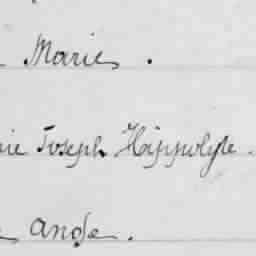 Marie.
Joseph Hippolyte.
Ange.